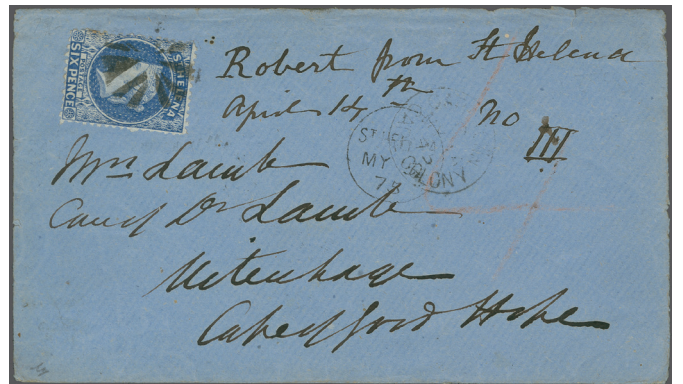 ST HELENA
POSTAGE
SIX PENCE
Robert from St Helena
April 14th
No III
ST HELENA
MY
73
COLONY
Mrs Lamb
Care of Dr Lamb
Uitenhage
Cape of Good Hope